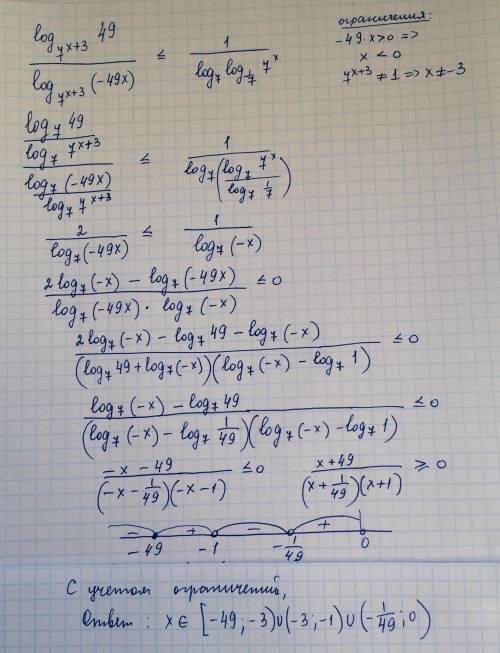 log_{7^{x+3}} 49 / log_{7^{x+3}} (-49x) ≤ 1 / log_7 log_{1/7} 7^x
ограничения:
-49·x>0 =>
x < 0
7^{x+3} ≠ 1 => x ≠ -3
(log_7 49 / log_7 7^{x+3}) / (log_7 (-49x) / log_7 7^{x+3}) ≤ 1 / log_7 (log_7 7^x / log_7 1/7)
2 / log_7 (-49x) ≤ 1 / log_7 (-x)
(2log_7 (-x) - log_7 (-49x)) / (log_7 (-49x) · log_7 (-x)) ≤ 0
(2log_7 (-x) - log_7 49 - log_7 (-x)) / ((log_7 49 + log_7 (-x))(log_7 (-x) - log_7 1)) ≤ 0
(log_7 (-x) - log_7 49) / ((log_7 (-x) - log_7 1/49)(log_7 (-x) - log_7 1)) ≤ 0
(-x - 49) / ((-x - 1/49)(-x - 1)) ≤ 0 (x + 49) / ((x + 1/49)(x + 1)) ≥ 0
- + - +
-49 -1 -1/49 0
С учетом ограничений,
Ответ: x ∈ [-49; -3) ∪ (-3; -1) ∪ (-1/49; 0)